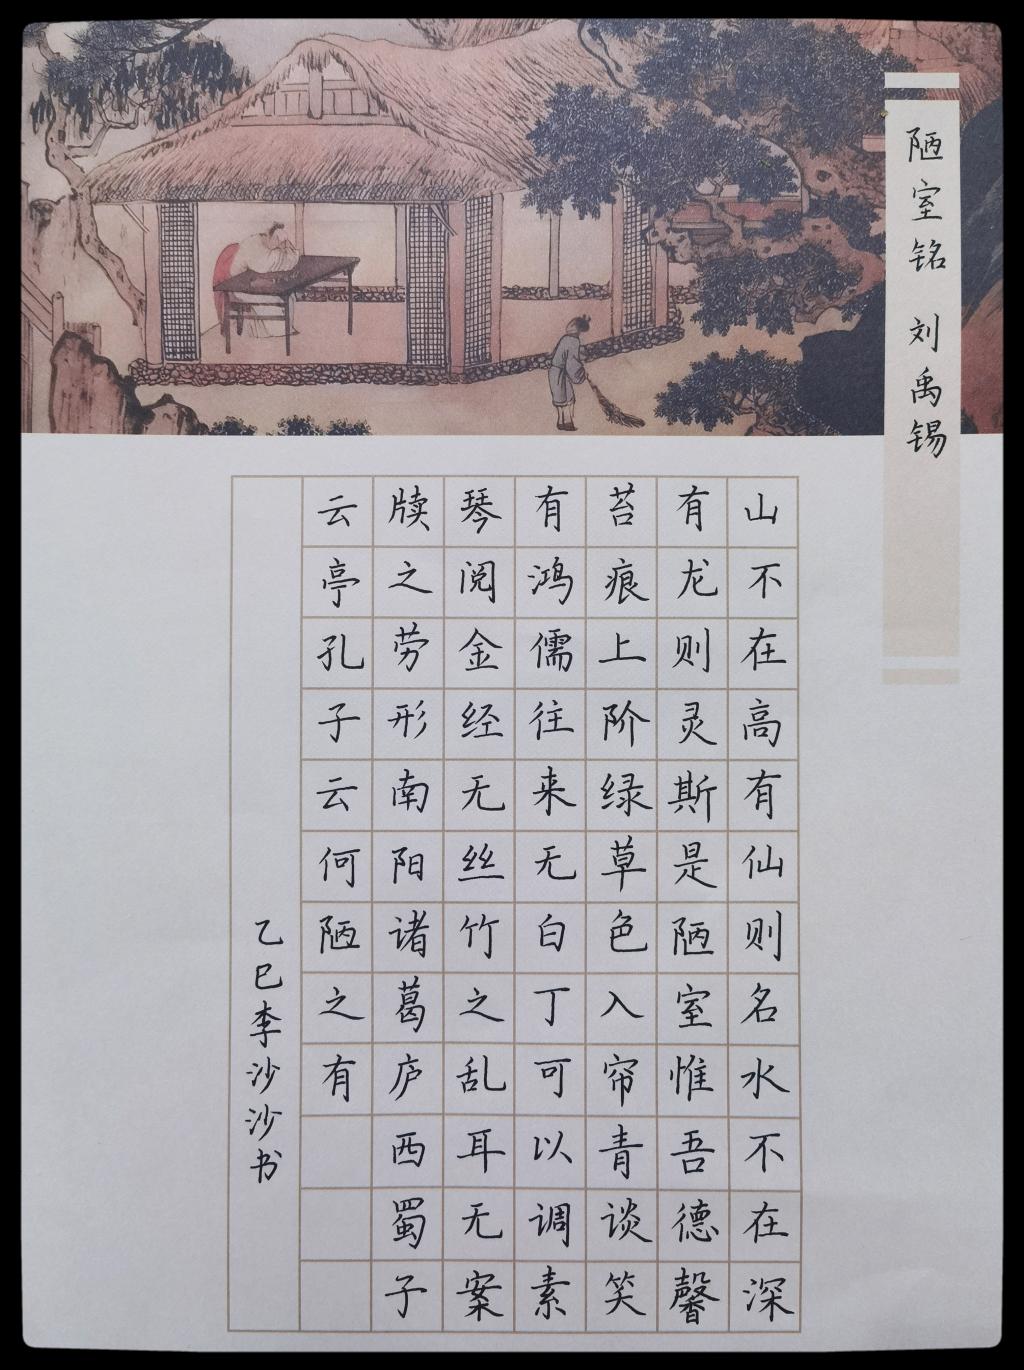 陋室铭 刘禹锡
山不在高有仙则名水不在深
有龙则灵斯是陋室惟吾德馨
苔痕上阶绿草色入帘青谈笑
有鸿儒往来无白丁可以调素
琴阅金经无丝竹之乱耳无案
牍之劳形南阳诸葛庐西蜀子
云亭孔子云何陋之有
乙巳李沙沙书